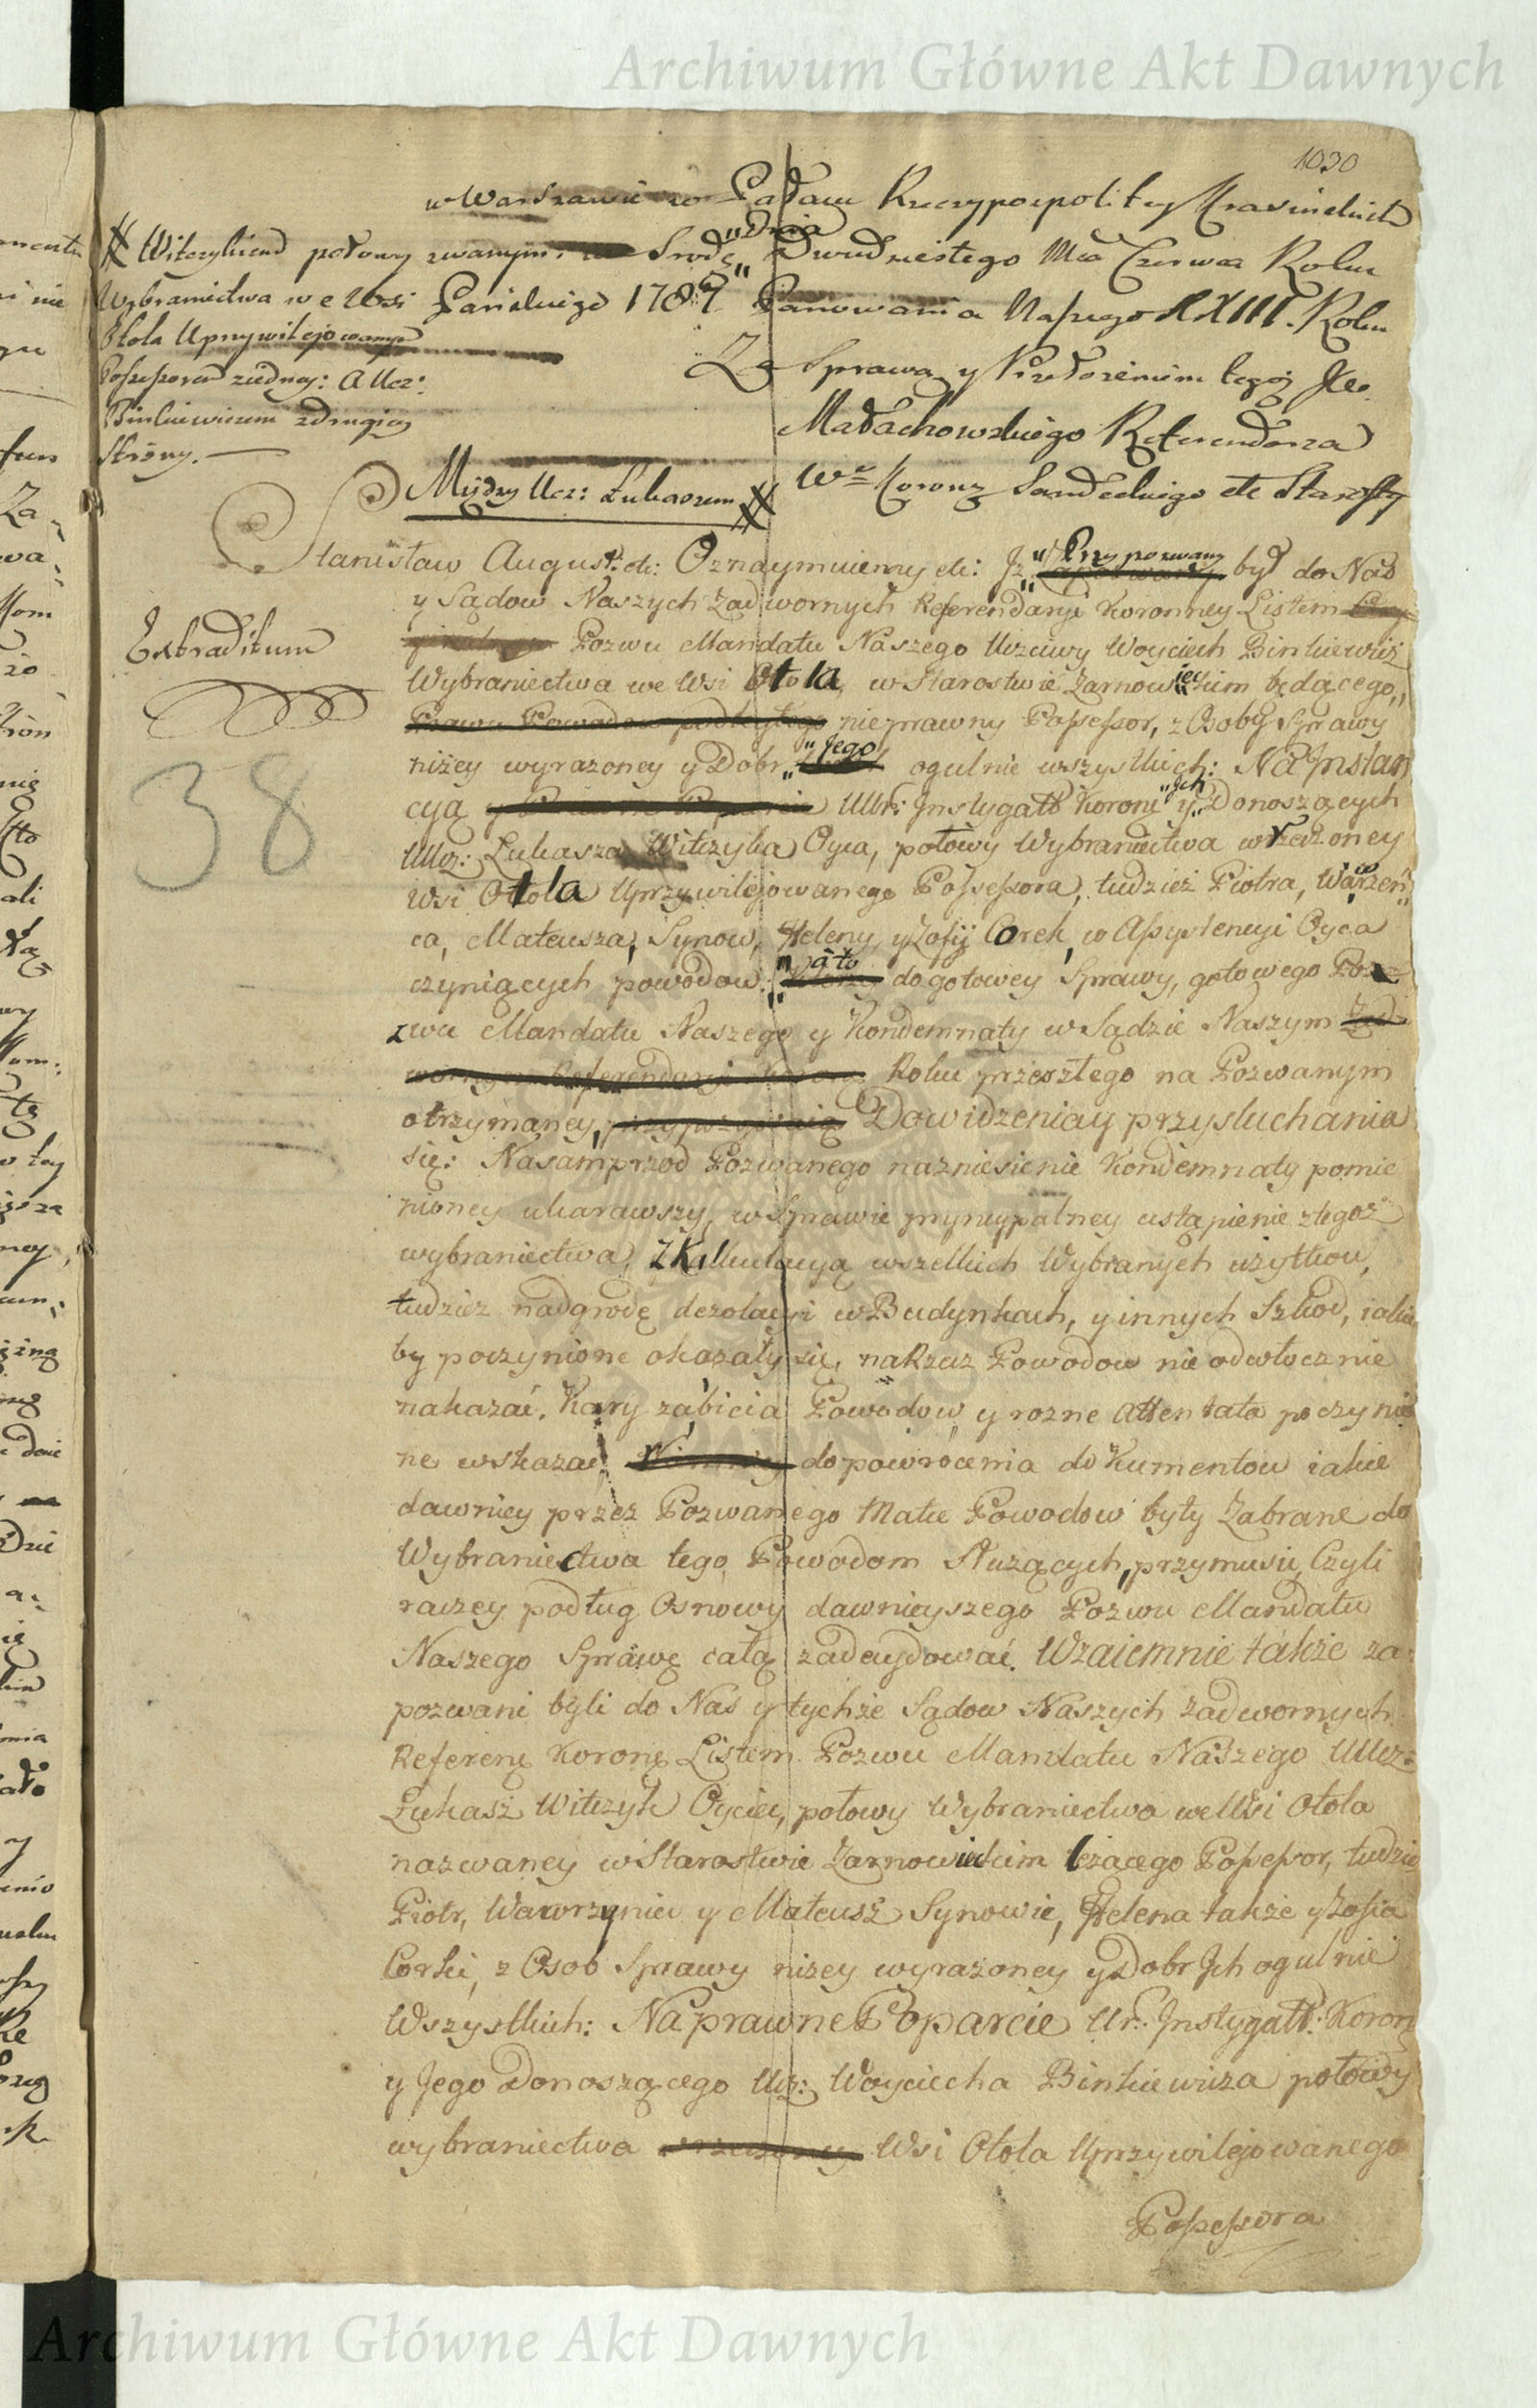 Archiwum Główne Akt Dawnych
1030
w Warszawie w Pałacu Rzeczypospolitey Krasinskich
Witczykiem połowy zwanym. Srodę „Dnia Dwudziestego Mca Czerwca Roku
Wybraniectwa we Wsi Pańskiego 1787. Panowania Naszego XXIII. Roku
Otola Uprzywilejowanym
Za Sprawą y Przełożeniem tegoż
Possessorem z iedney: A Ucz:
Małachowskiego Referendarza
Binkiewiczem z drugiey
Strony.
Między Ucz: Łukaszem
Wo Koronn Sandeckiego etc Starosty
Stanisław August: etc: Oznaymuiemy etc: Iż „Przypozwany był do Nas
y Sądow Naszych Zadwornych Referendaryi Koronney Listem
Extraditum
Pozwu Mandatu Naszego Uczciwy Woyciech Binkiewicz
Wybraniectwa we Wsi Otola, w Starostwie Zarnowieckim będącego,
Prawu Powodow podległego nieprawny Possessor, z Osoby Sprawy
niżey wyrażoney y Dobr „Jego ogulnie wszystkich: Na Instan
38
cyą Ur: Instygatt Koronn y „Ich Donoszących
Ucz: Łukasza Witczyka Oyca, połowy Wybraniectwa wrzeczoney
Wsi Otola Uprzywilejowanego Possessora, tudzież Piotra, Wawrzeń
ca, Mateusza, Synow, Heleny y Zofij Corek, w Assystencyi Oyca
czyniących powodow: „a to do gotowey Sprawy, gotowego Poz
zwu Mandatu Naszego y Kondemnaty w Sądzie Naszym Zad
wornym Referendaryi Koronn Roku przeszłego na Pozwanym
otrzymaney, Do widzenia y przysłuchania
się: Nasamprzod Pozwanego na zniesienie Kondemnaty pomie
nioney ukarawszy, w Sprawie pryncypalney ustąpienie z tegoż
wybraniectwa, z Kalkulacyą wszelkich Wybranych użytkow,
tudzież nadgrodę dezolacyi w Budynkach, y innych Szkod, iakie
by poczynione okazały się, na Rzecz Powodow nieodwłocznie
nakazać. Kary zabicia Powodow y rozne Attentata poczynio
ne wskazać. do powrócenia dokumentow iakie
dawniey przez Pozwanego Matce Powodow były Zabrane do
Wybraniectwa tego Powodom służących, przymusić, Czyli
raczey podług Osnowy dawnieyszego Pozwu Mandatu
Naszego Sprawę całą zadecydować. Wzaiemnie także za
pozwani byli do Nas y tychże Sądow Naszych Zadwornych
Referenę Koronę Listem Pozwu Mandatu Naszego Ucz:
Łukasz Witczyk Oyciec, połowy Wybraniectwa we Wsi Otola
nazwaney w Starostwie Zarnowieckim leżącego Possessor, tudzie
Piotr, Wawrzyniec y Mateusz Synowie, Helena także y Zofia
Corki, z Osob Sprawy niżey wyrażoney y Dobr Ich ogulnie
Wszystkich: Na prawne Poparcie Ur: Instygatt: Koron
y Jego Donoszącego Ucz: Woyciecha Binkiewicza połowy
wybraniectwa wrzeczoney Wsi Otola Uprzywilejowanego
Possessora
Archiwum Główne Akt Dawnych